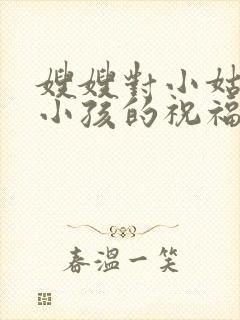 嫂嫂對小姑
小孩的祝福
春溫一笑